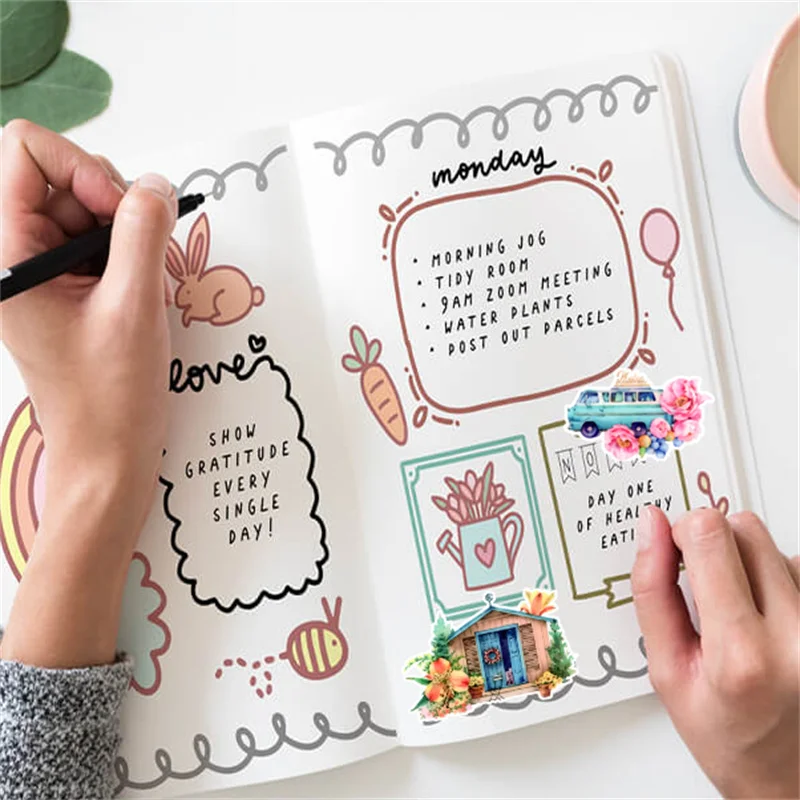 love
SHOW
GRATITUDE
EVERY
SINGLE
DAY!
monday
• MORNING JOG
• TIDY ROOM
• 9AM ZOOM MEETING
• WATER PLANTS
• POST OUT PARCELS
DAY ONE
OF HEALTHY